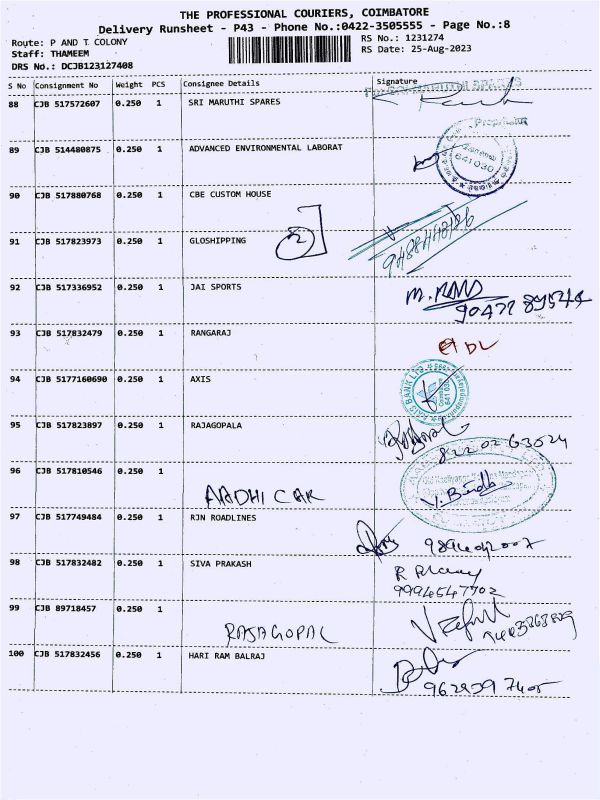 THE PROFESSIONAL COURIERS, COIMBATORE
Delivery Runsheet - P43 - Phone No.:0422-3505555 - Page No.:8
Route: P AND T COLONY RS No.: 1231274
Staff: THAMEEM RS Date: 25-Aug-2023
DRS No.: DCJB123127408
S No Consignment No Weight PCS Consignee Details Signature
88 CJB 517572607 0.250 1 SRI MARUTHI SPARES
Proprietor
89 CJB 514480875 0.250 1 ADVANCED ENVIRONMENTAL LABORAT
641 030
90 CJB 517880768 0.250 1 CBE CUSTOM HOUSE
91 CJB 517823973 0.250 1 GLOSHIPPING 2
92 CJB 517336952 0.250 1 JAI SPORTS
93 CJB 517832479 0.250 1 RANGARAJ
DL
94 CJB 5177160690 0.250 1 AXIS
AXIS BANK LTD
95 CJB 517823897 0.250 1 RAJAGOPALA
8220263524
96 CJB 517810546 0.250 1
AADHI CAR
97 CJB 517749484 0.250 1 RJN ROADLINES
98 CJB 517832482 0.250 1 SIVA PRAKASH
9994547702
99 CJB 89718457 0.250 1
RAJAGOPAL
100 CJB 517832456 0.250 1 HARI RAM BALRAJ